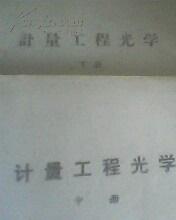 計量工程光学
下册
计量工程光学
中册